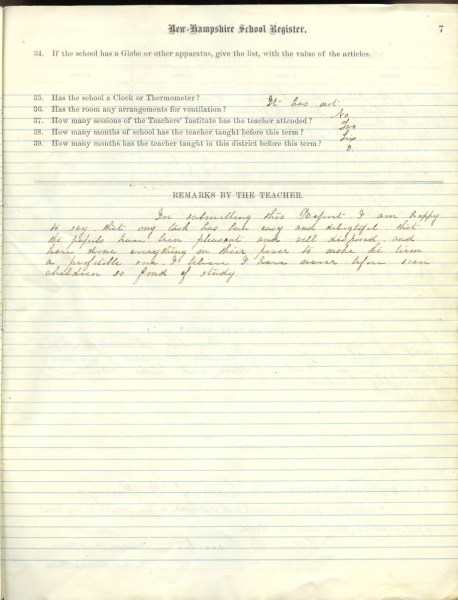 New-Hampshire School Register. 7
34. If the school has a Globe or other apparatus, give the list, with the value of the articles.
35. Has the school a Clock or Thermometer? It has not
36. Has the room any arrangements for ventilation? No
37. How many sessions of the Teachers' Institute has the teacher attended? Two
38. How many months of school has the teacher taught before this term? Six
39. How many months has the teacher taught in this district before this term? 0.
REMARKS BY THE TEACHER.
In submitting this Report I am happy
to say that my task has been easy and delightful that
the pupils have been pleasant and well disposed, and
have done everything in their power to make the term
a profitible one. I believe I have never before seen
children so fond of study